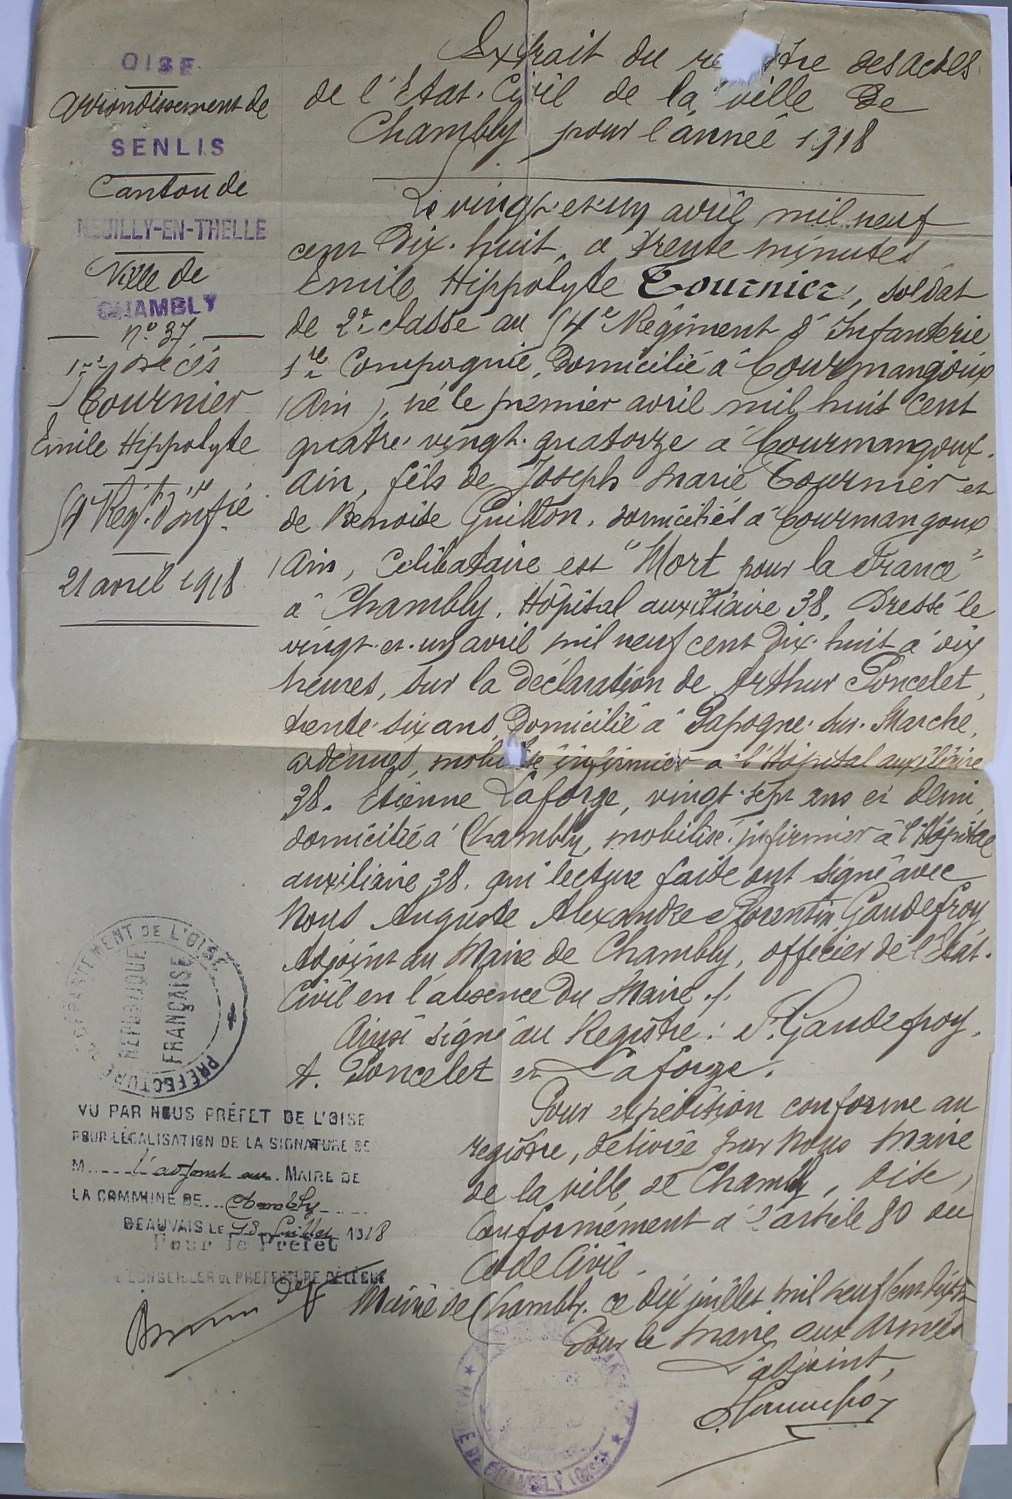 OISE
Arrondissement de
SENLIS
Canton de
NEUILLY-EN-THELLE
Ville de
CHAMBLY
n° 37
Décès
Tournier
Emile Hippolyte
Régt d'Inf^ie
21 avril 1918
Extrait du re tre des actes
de l'Etat-Civil de la ville de
Chambly pour l'année 1918
Le vingt et un avril mil neuf
cent dix-huit, à trente minutes
Emile Hippolyte Tournier, soldat
de 2e classe au Régiment d'Infanterie
1re Compagnie, domicilié à Courmangoux
(Ain), né le premier avril mil huit cent
quatre-vingt-quatorze à Courmangoux.
Ain, fils de Joseph Marie Tournier et
de Benoite Guillon, domiciliés à Courmangoux
(Ain, Célibataire est "Mort pour la France"
à Chambly, Hôpital auxiliaire 38. Dressé le
vingt-et-un avril mil neuf cent dix-huit à dix
heures, sur la déclaration de Arthur Poncelet,
trente-six ans, domicilié à Sapogne-sur-Marche,
ardennes, mobilisé infirmier à l'Hôpital auxiliaire
38. Etienne Laforge, vingt-sept ans et demi,
domicilié à Chambly, mobilisé infirmier à l'Hôpital
auxiliaire 38. qui lecture faite ont signé avec
Nous Auguste Alexandre Florentin Gaudefroy
Adjoint au Maire de Chambly, officier de l'Etat-
Civil en l'absence du Maire ./.
Ainsi signé au Registre: F. Gaudefroy.
A. Poncelet et Laforge.
Pour expédition conforme au
registre, délivrée par Nous Maire
de la ville de Chambly, Oise,
Conformément à l'article 80 du
Code Civil.
Mairie de Chambly. ce dix juillet mil neuf cent dix huit
Pour le Maire aux armées
L'adjoint,
DEPARTEMENT DE L'OISE
REPUBLIQUE
FRANÇAISE
PREFECTURE
VU PAR NOUS PRÉFET DE L'OISE
POUR LÉGALISATION DE LA SIGNATURE DE
M. l'adjoint au MAIRE DE
LA COMMUNE DE Chambly
BEAUVAIS LE 13 Juillet 1918
Pour le Préfet
LE CONSEILLER DE PRÉFECTURE DÉLÉGUÉ
MAIRIE DE CHAMBLY (OISE)